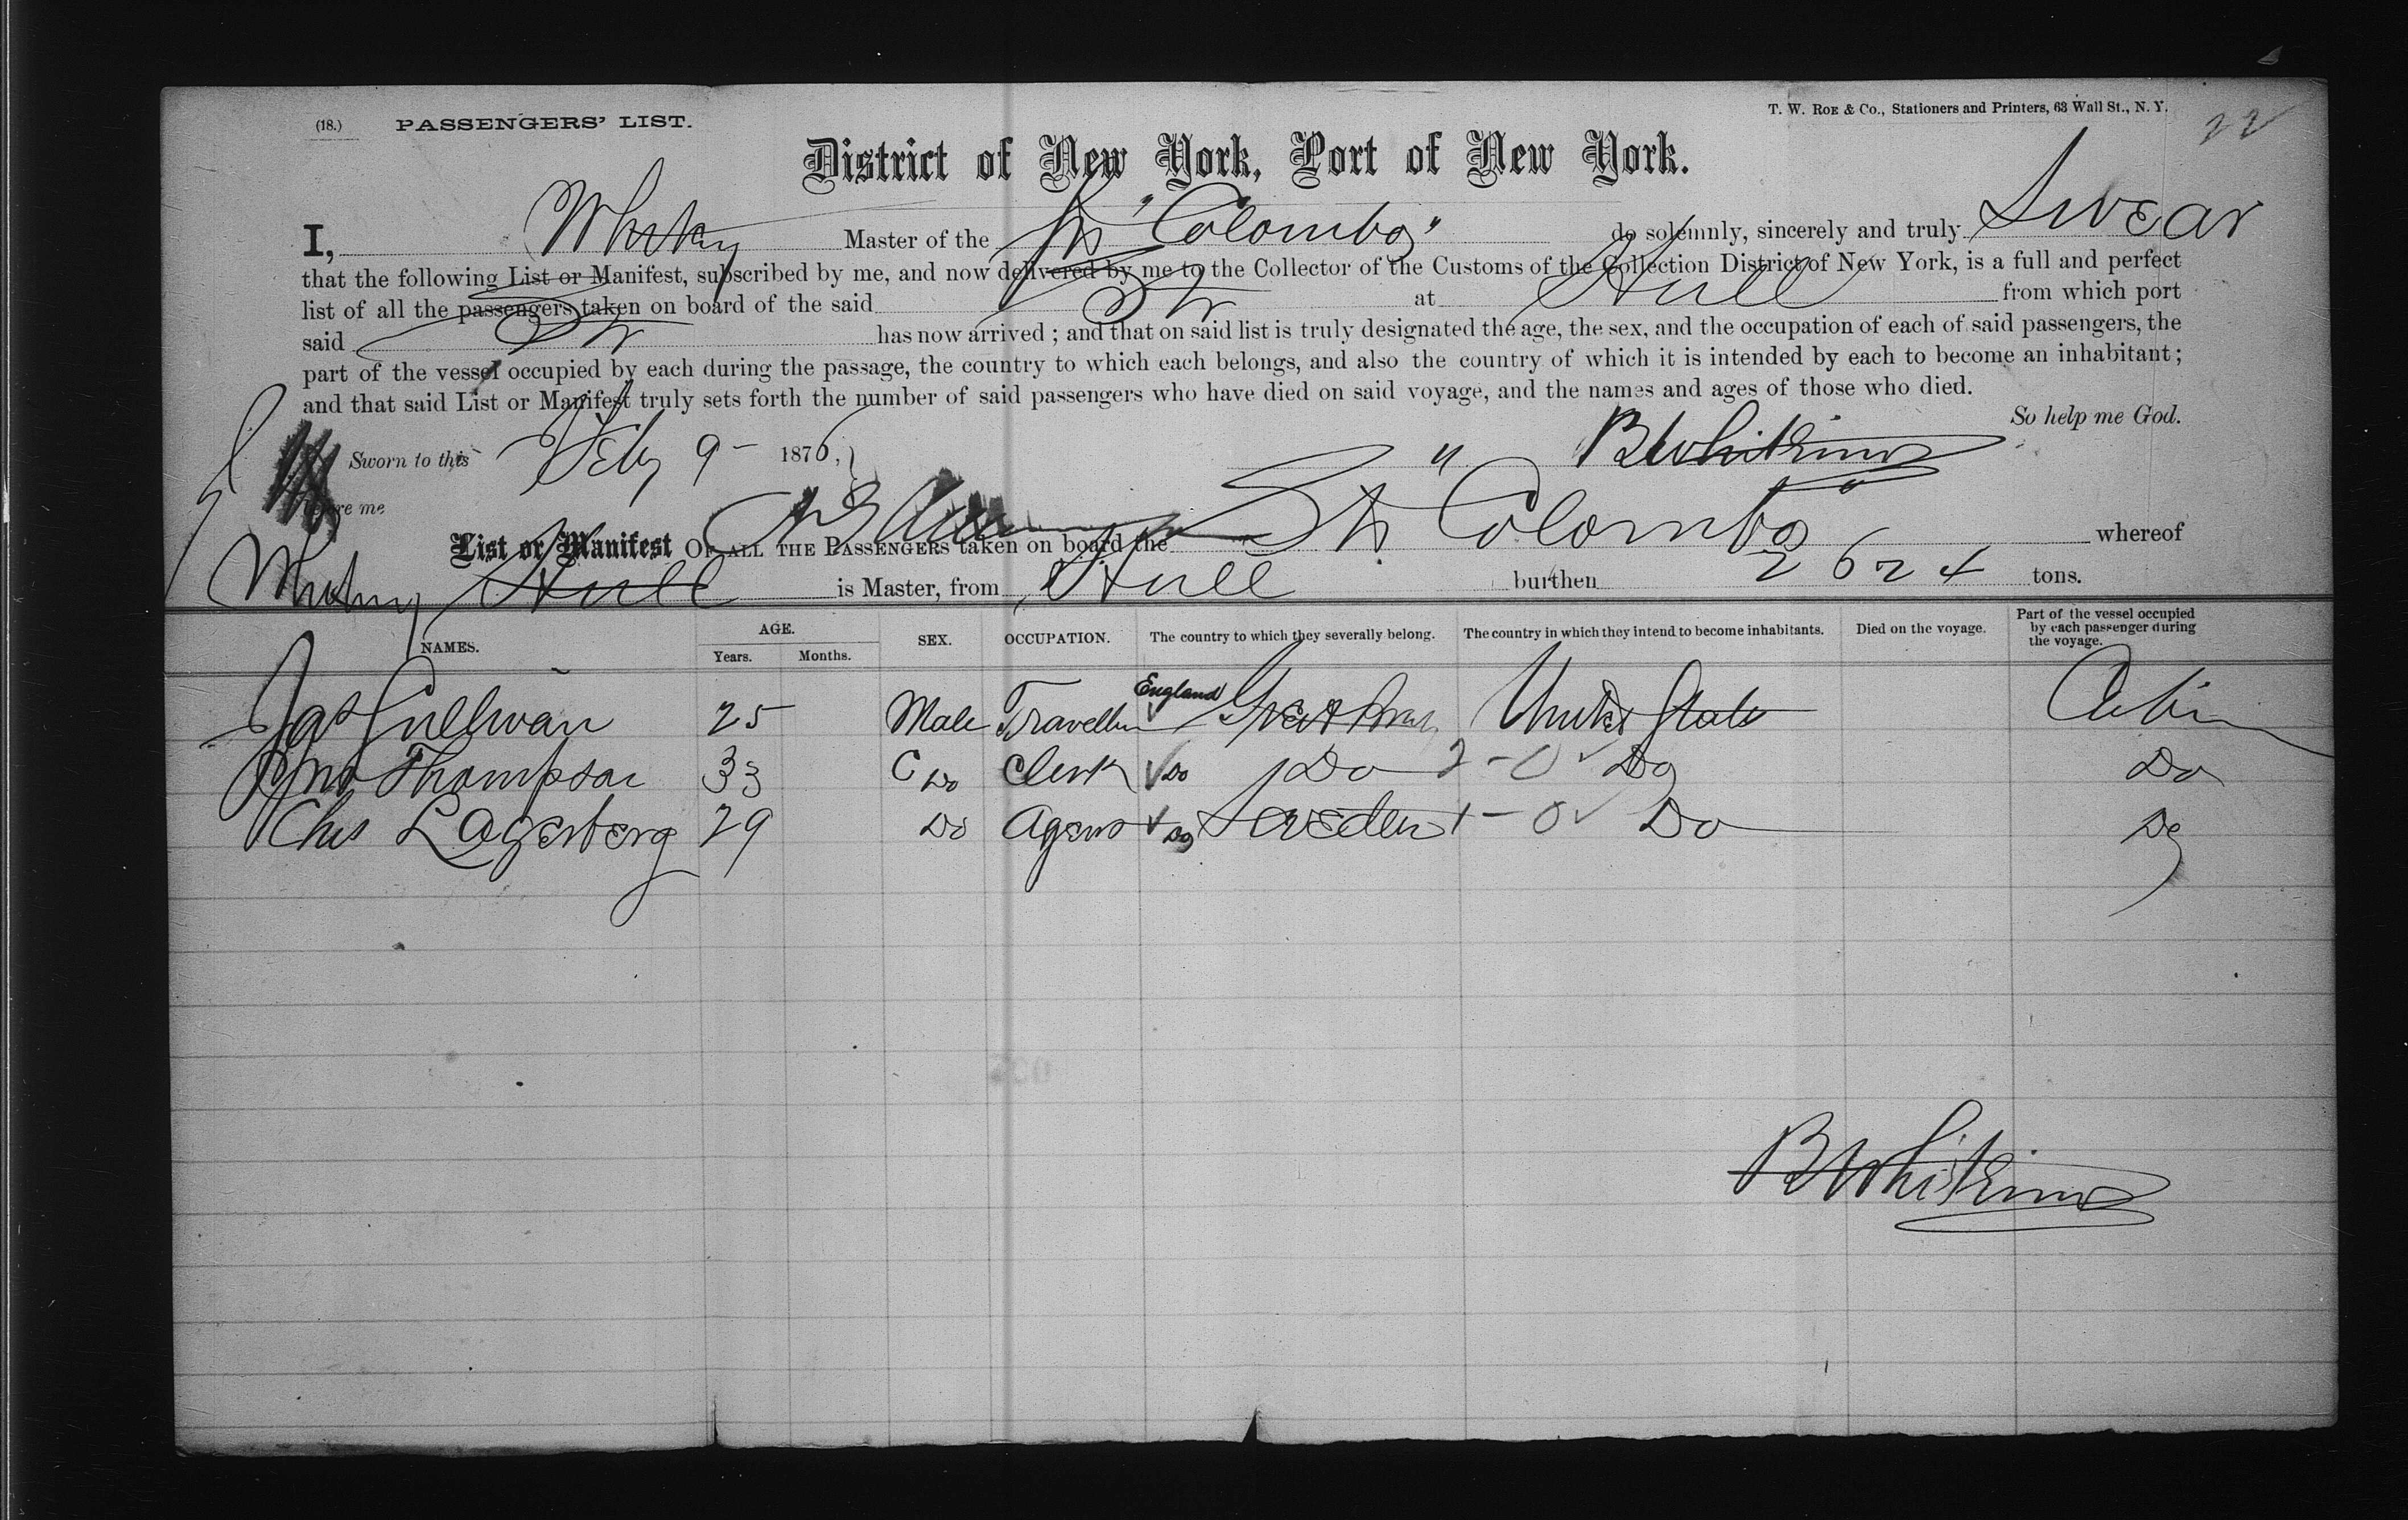 (18.) PASSENGERS' LIST.
T. W. ROE & Co., Stationers and Printers, 63 Wall St., N. Y.
22
District of New York, Port of New York.
I, Master of the Str "Colombo" do solemnly, sincerely and truly Swear
that the following List or Manifest, subscribed by me, and now delivered by me to the Collector of the Customs of the Collection District of New York, is a full and perfect
list of all the passengers taken on board of the said Str at Hull from which port
said Str has now arrived ; and that on said list is truly designated the age, the sex, and the occupation of each of said passengers, the
part of the vessel occupied by each during the passage, the country to which each belongs, and also the country of which it is intended by each to become an inhabitant ;
and that said List or Manifest truly sets forth the number of said passengers who have died on said voyage, and the names and ages of those who died.
So help me God.
Sworn to this Feby 9 - 1876,
before me
List or Manifest OF ALL THE PASSENGERS taken on board the Str Colombo whereof
Hull is Master, from Hull burthen 2624 tons.
NAMES. AGE. Years. Months. SEX. OCCUPATION. The country to which they severally belong. The country in which they intend to become inhabitants. Died on the voyage. Part of the vessel occupied by each passenger during the voyage.
Jas Sullivan 25 Male Traveller England United States Cabin
Jno Thompson 33 Do Clerk Do Do 2 - 0 Do Do
Chs Lagerberg 29 Do Agent Do Sweden 1 - 0 Do Do